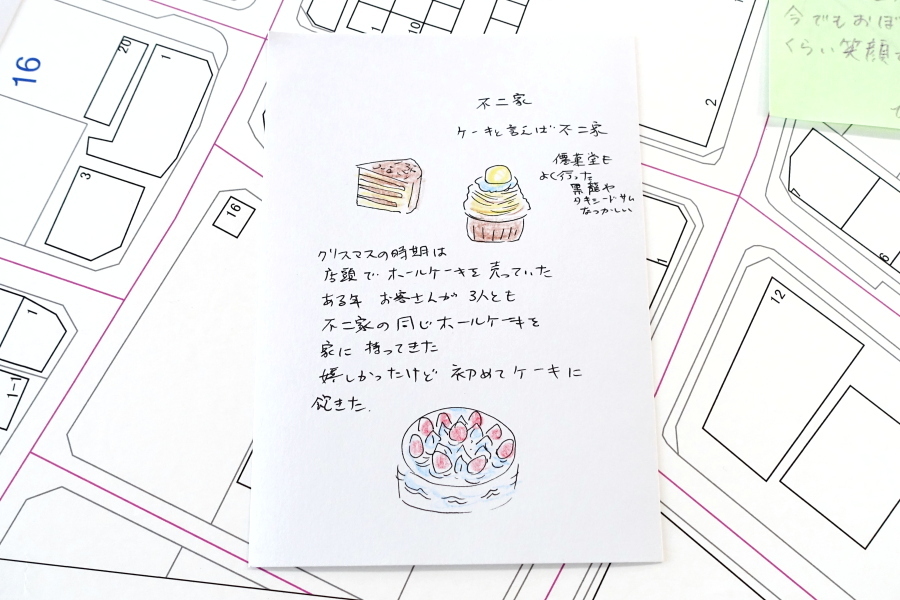 不二家
ケーキと言えば 不二家
優菓堂も
よく行った
黒龍や
タキシードサム
なつかしい
クリスマスの時期は
店頭で ホールケーキを 売っていた
ある年 お客さんが 3人とも
不二家の 同じホールケーキを
家に 持ってきた
嬉しかったけど 初めてケーキに
飽きた.
今でもおぼ
くらい笑顔
16
20
1
3
16
10
2
1
7
6
12
1
1-1